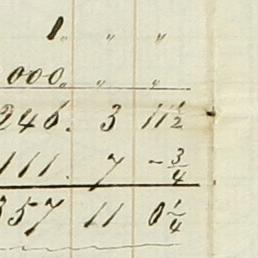 1. " "
000. " "
246. 3 11 1/2
111. 7 - 3/4
357 11 0 1/4